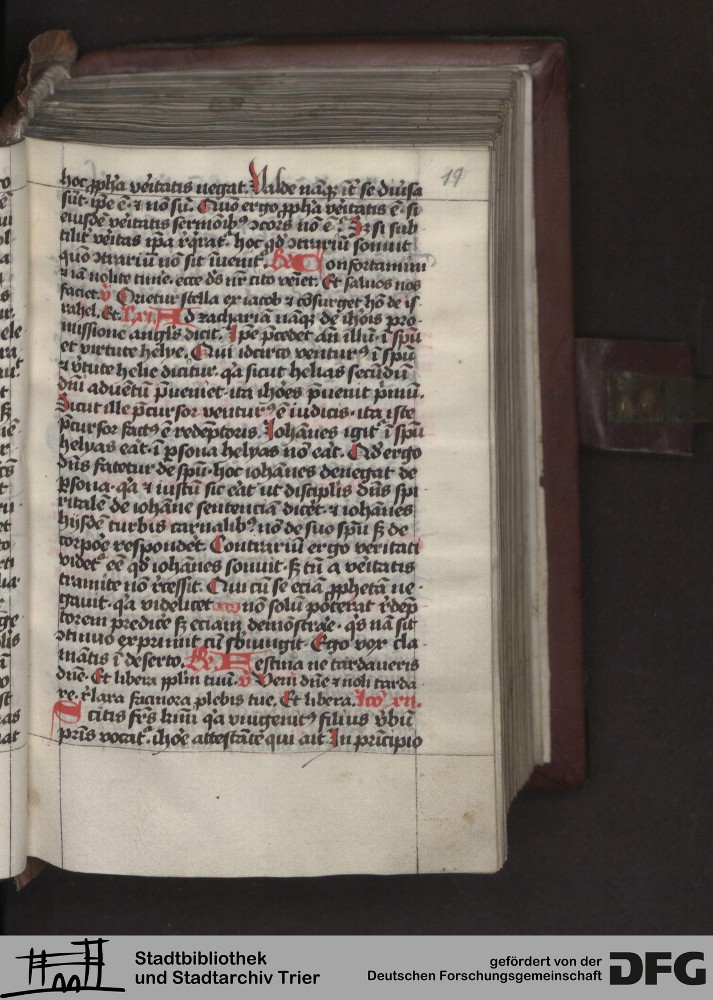 19
hoc ꝓph̄a v̄itatis negat. Valde naꝗ it̄ se diuisa
sūt. ip̄e ē. ⁊ nō sū. Quō ergo ꝓph̄a v̄itatis ē. si
eiusdē veritatis sermōibꝰ ↄcors nō ē. Sꝫ si sub
tilit̄ v̄itas ip̄a r̄q̄rat̄. hoc qd̄ ↄtrariū sonuit
quō ↄtrariū nō sit īuenit̄. Re Confortamini
⁊ iā nolite time. ecce dn̄s nr̄ cito veīet. Et saluos nos
faciet. v̄ Orietur stella ex iacob ⁊ cōsurget hō de is
rahel. Et. Ad zachariā naꝗ de ioh̄is pro-
missione angl̄s dicit. Ipe p̄cedet an̄ illū. ī sp̄u
et virtute helye. Qui idcirco venturꝰ ī sp̄u
⁊ v̄tute helie dicitur. q̄a sicut helias secūdū
dn̄i aduētū p̄ueniet. ita ioh̄es p̄uenit p̄mū.
Sicut ille p̄cursor venturꝰ ē iudicis. ita iste
p̄cursor factꝰ ē redēptoris. Iohānes igit̄ ī sp̄u
helyas erat. ī ꝑsona helyas nō erat. Qd̄ ergo
dn̄s fatetur de sp̄u. hoc iohānes denegat de
ꝑsona. q̄a ⁊ iustū sic erat ut disciplis dn̄s spi
ritalē de iohāne sentenciā dicēt. ⁊ iohānes
hijsdē turbis carnalibꝰ nō de suo sp̄u sꝫ de
corpoe respondet. Contrariū ergo veritati
videt̄ ēē qd̄ iohānes sonuit. sꝫ tn̄ a veritatis
tramite nō r̄cessit. Qui cū se eciā ꝓphetā ne-
gauit. q̄a videlicet nō solū poterat r̄dēp
torem predice sꝫ eciam demōstrāe. q̄s nā sit
ↄtinuo exprimit cū sbiungit. Ego vox cla-
mātis ī deserto. Re Festina ne tardaueris
dn̄e. Et libera ppl̄m tuū. v̄ Veni dn̄e ⁊ noli tarda
re. r̄laxa facinora plebis tue. Et libera. lcō xii.
Scitis frs̄ kmi q̄a vnigenitꝰ filius v̄bū
prīs vocat̄. ioh̄e attestāte qui ait. In prīcipio
Stadtbibliothek
und Stadtarchiv Trier
gefördert von der
Deutschen Forschungsgemeinschaft
DFG